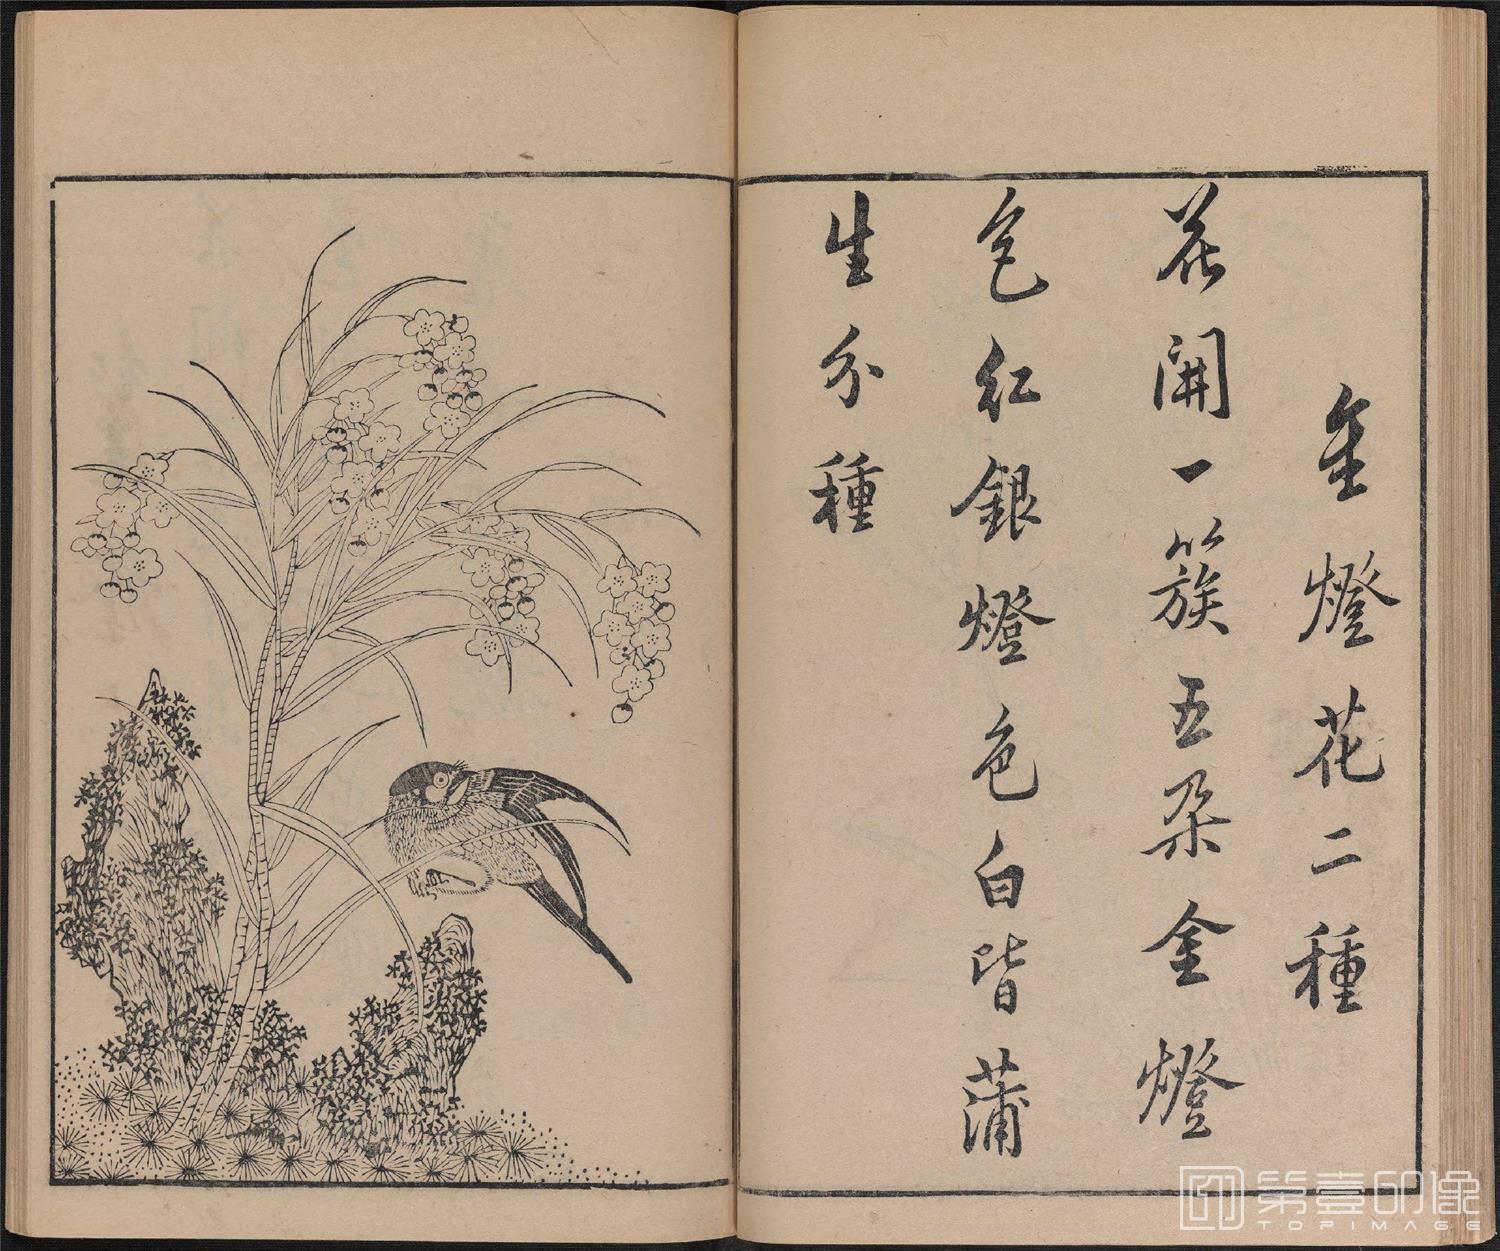 金燈花二種
花開一簇五朵金燈
色紅銀燈色白皆蒲
生分種
第壹印像
TOPIMAGE